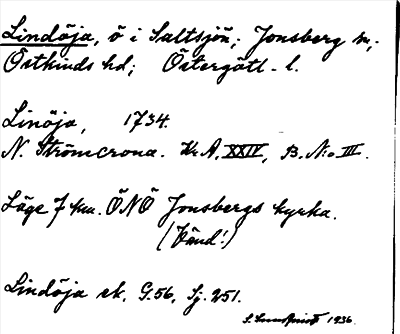 Lindöja, ö i Saltsjön; Jonsberg sn;
Östkinds hd; Östergötl. l.
Linöja, 1734.
N. Strömcrona. Kr. A. XXIV, B. N:o III.
Läge 7 km. ÖNÖ Jonsbergs kyrka.
(Vänd!)
Lindöja ek. G.56, Sj. 251.
1936.